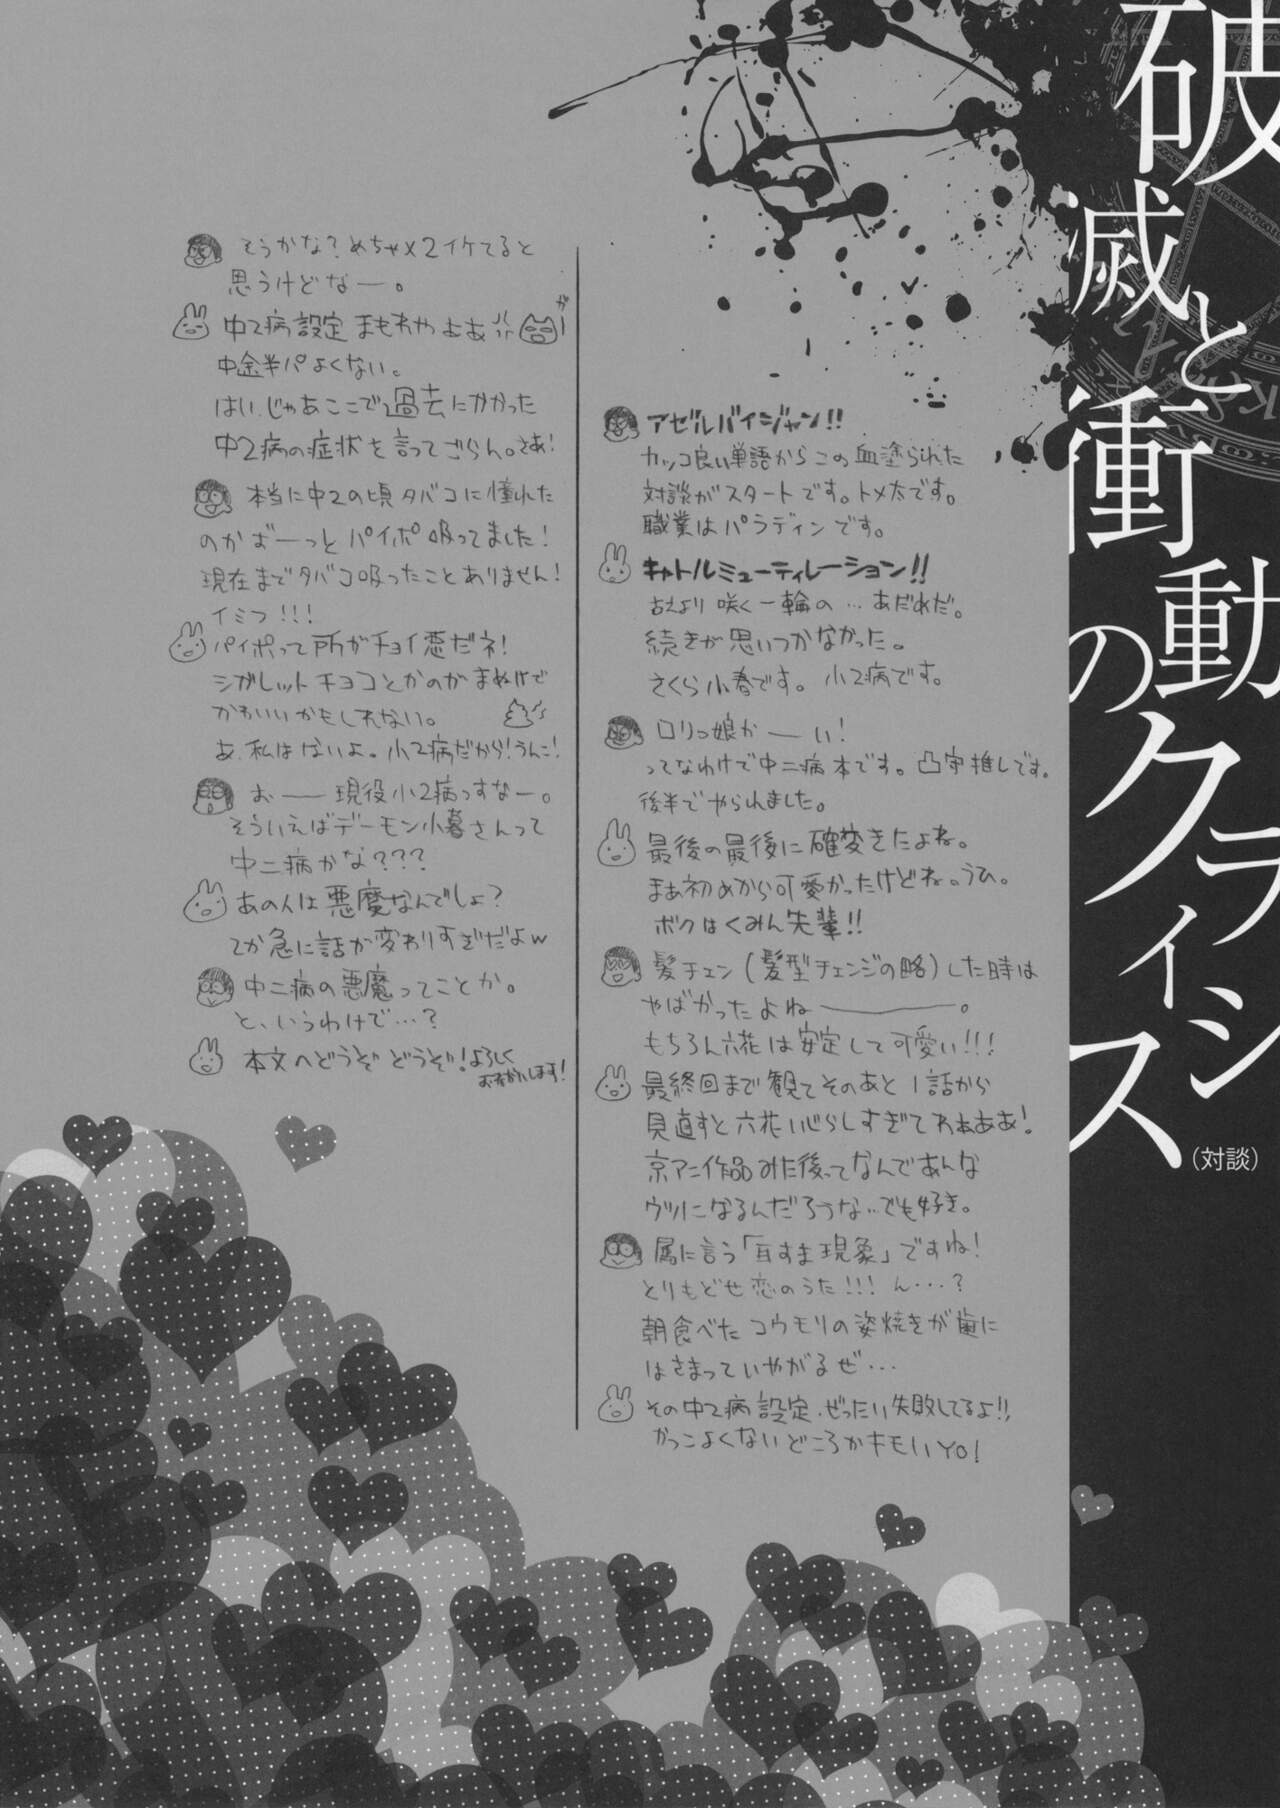 破滅と衝動のクライシス
(対談)
アゼルバイジャン!!
カッコ良い単語からこの血塗られた
対談がスタートです。トメ太です。
職業はパラディンです。
キャトルミューティレーション!!
古えより咲く一輪の…あだれだ。
続きが思いつかなかった。
さくら小春です。小2病です。
ロリっ娘かーい!
ってなわけで中二病本です。凸守推しです。
後半でやられました。
最後の最後に確変きたよね。
まぁ初めから可愛かったけどね。うひ。
ボクはくみん先輩!!
髪チェン(髪型チェンジの略)した時は
やばかったよねー。
もちろん六花は安定して可愛い!!!
最終回まで観てそのあと1話から
見直すと六花いじらしすぎてわぁああ!
京アニ作品みた後ってなんであんな
ウツになるんだろうな…でも好き。
属に言う「耳すま現象」ですね!
とりもどせ恋のうた!!! ん…?
朝食べたコウモリの姿焼きが歯に
はさまっていやがるぜ…
その中2病設定、ぜったい失敗してるよ!!
かっこよくないどころかキモいYO!
そうかな?めちゃ×2イケてると
思うけどなー。
中2病設定まもれやぁぁ
がー
中途半パよくない。
はい、じゃあここで過去にかかった
中2病の症状を言ってごらん。さあ!
本当に中2の頃タバコに憧れた
のかずーっとパイポ吸ってました!
現在までタバコ吸ったことありません!
イミフ!!!
パイポって所がチョイ悪だネ!
シガレットチョコとかのがまぬけで
かわいいかもしれない。
あ、私はないよ。小2病だから!うんこ!
おー現役小2病っすなー。
そういえばデーモン小暮さんって
中二病かな???
あの人は悪魔なんでしょ?
てか急に話が変わりすぎだよw
中二病の悪魔ってことか。
と、いうわけで…?
本文へどうぞどうぞ!よろしく
おねがいします!